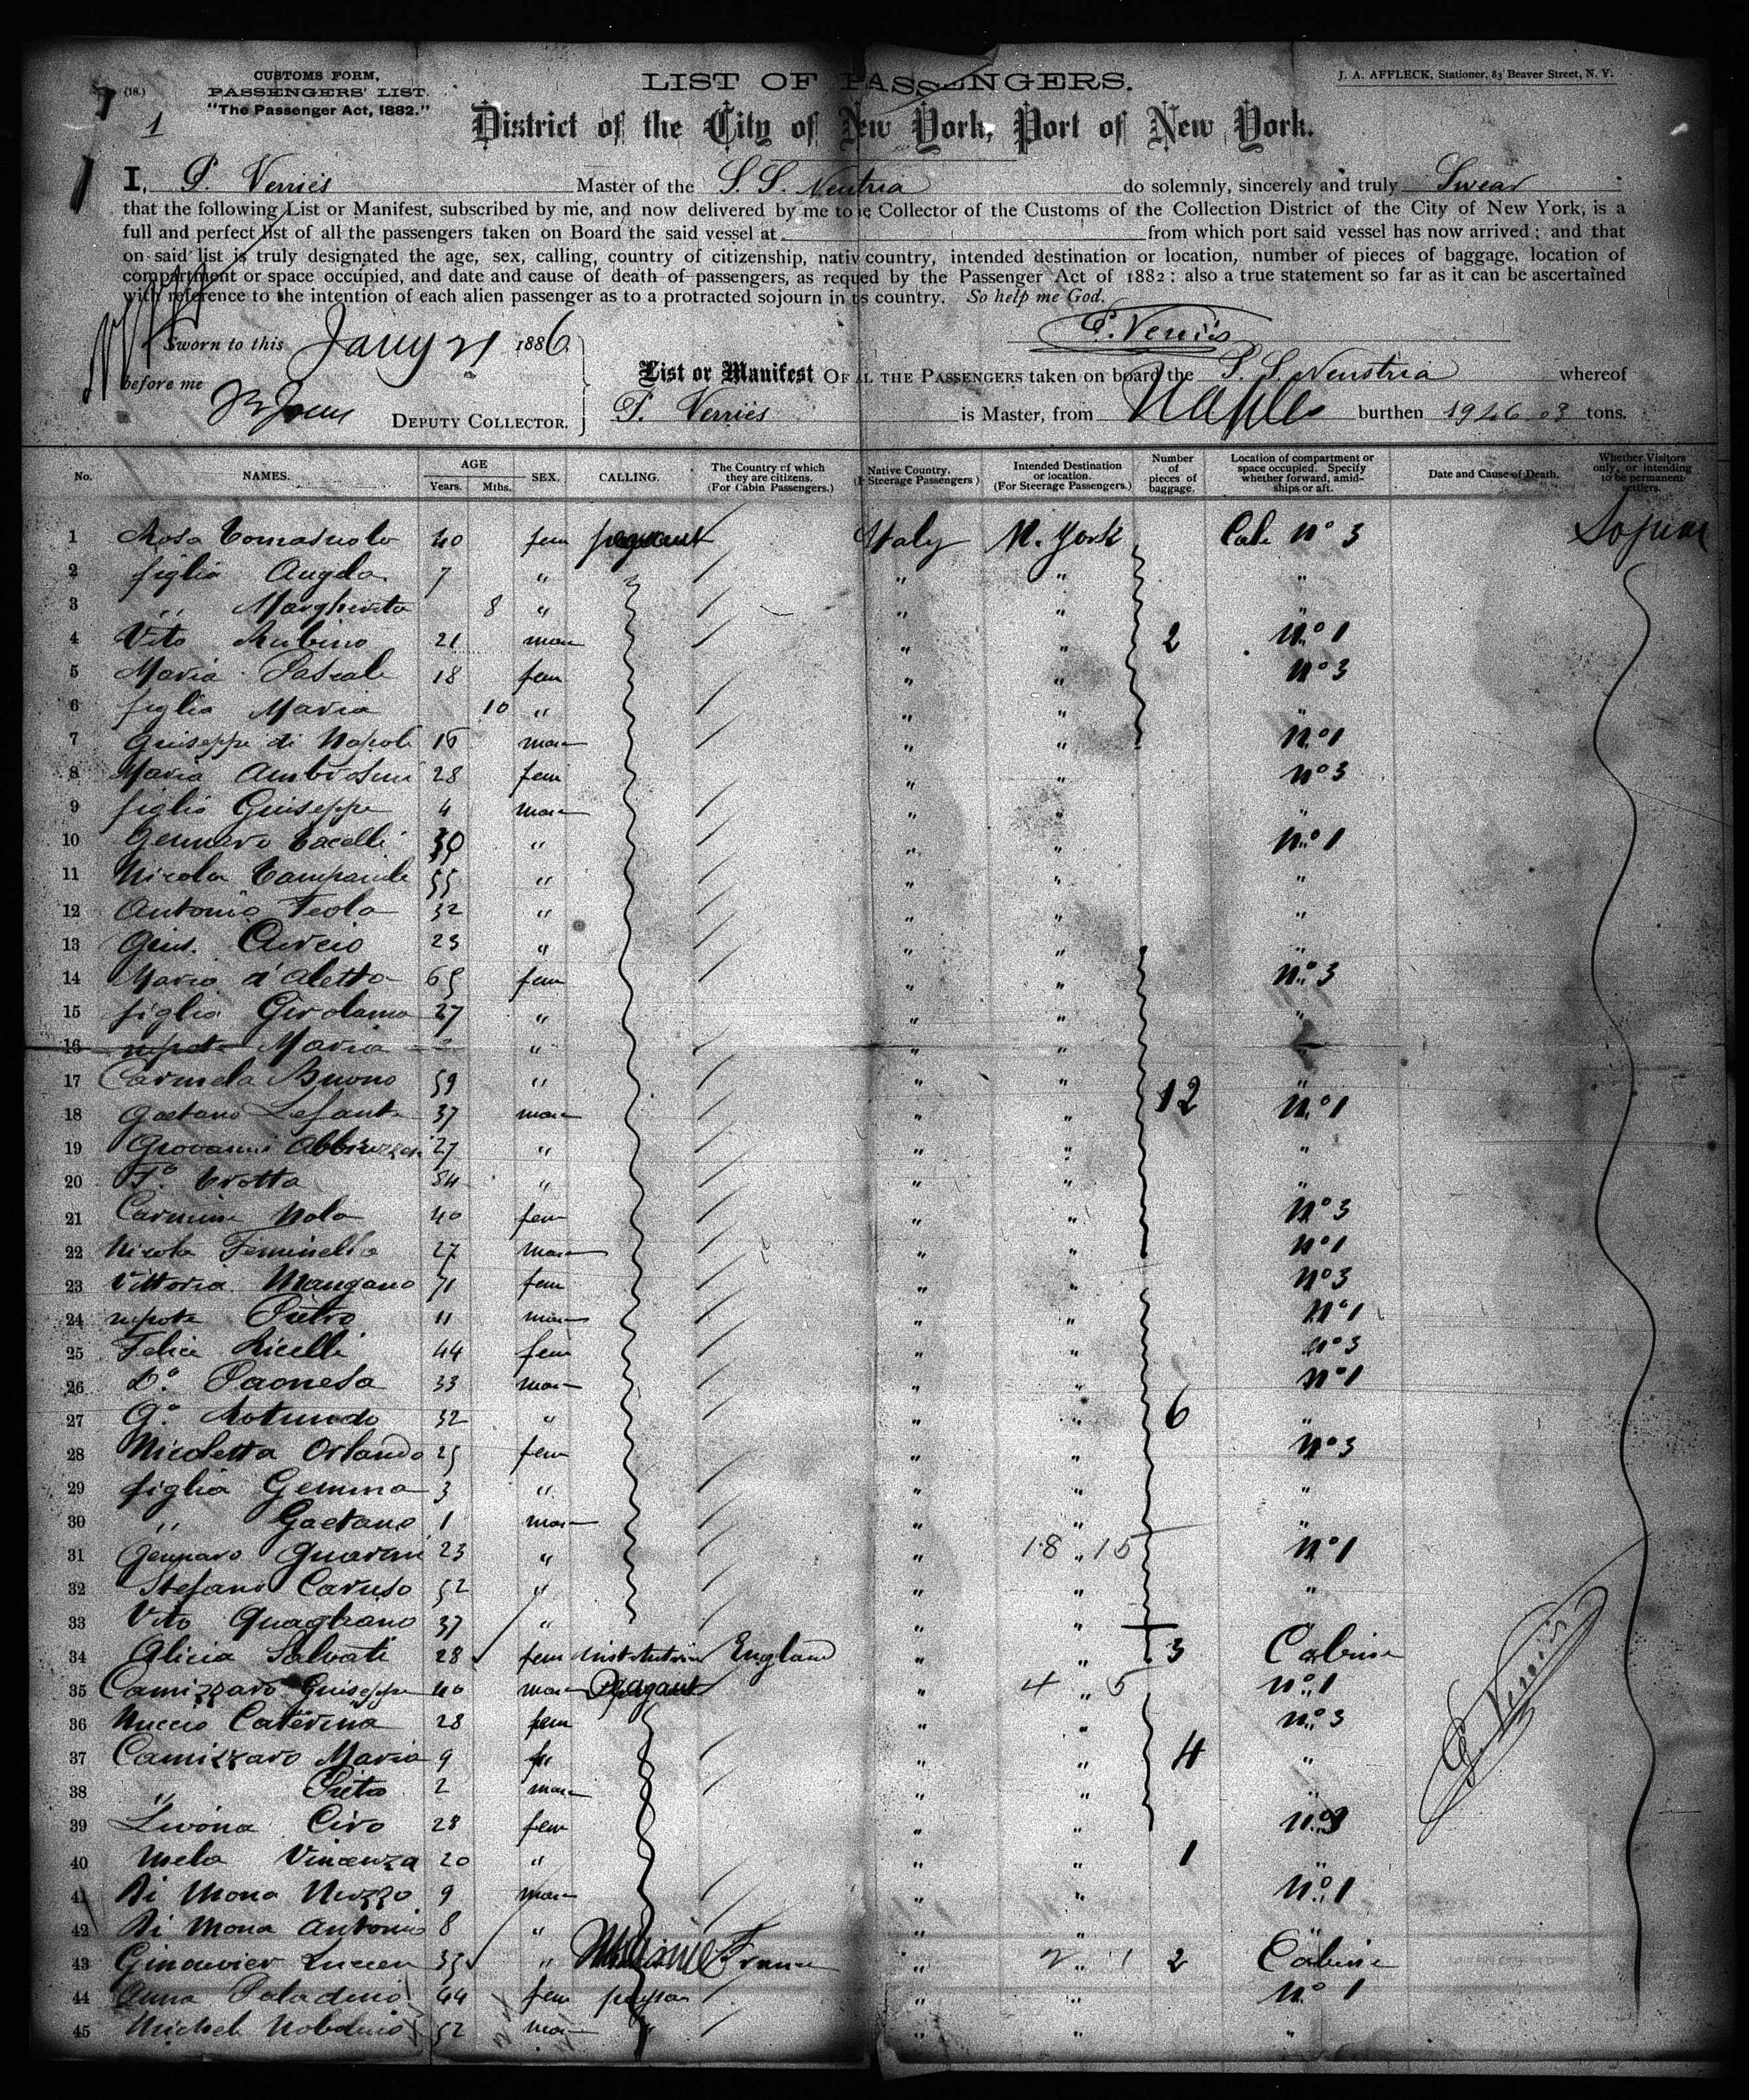 (18.)
CUSTOMS FORM,
PASSENGERS' LIST.
"The Passenger Act, 1882."
1
LIST OF PASSENGERS.
J. A. AFFLECK, Stationer, 83 Beaver Street, N. Y.
District of the City of New York, Port of New York.
I, P. Verriés Master of the S. S. Neustria do solemnly, sincerely and truly Swear
that the following List or Manifest, subscribed by me, and now delivered by me to the Collector of the Customs of the Collection District of the City of New York, is a
full and perfect list of all the passengers taken on Board the said vessel at from which port said vessel has now arrived; and that
on said list is truly designated the age, sex, calling, country of citizenship, native country, intended destination or location, number of pieces of baggage, location of
compartment or space occupied, and date and cause of death of passengers, as requed by the Passenger Act of 1882: also a true statement so far as it can be ascertained
with reference to the intention of each alien passenger as to a protracted sojourn in this country. So help me God.
P. Verriés
Sworn to this Jany 21 1886
before me
DEPUTY COLLECTOR.
List or Manifest OF ALL THE PASSENGERS taken on board the S. S. Neustria whereof
P. Verriés is Master, from Naples burthen 1926 03 tons.
No. NAMES. AGE Years. Mths. SEX. CALLING. The Country of which they are citizens. (For Cabin Passengers.) Native Country. (For Steerage Passengers) Intended Destination or location. (For Steerage Passengers.) Number of pieces of baggage. Location of compartment or space occupied. Specify whether forward, amid-ships or aft. Date and Cause of Death. Whether Visitors only, or intending to be permanent settlers.
1 Rosa Tomasuolo 40 fem Italy N. York Cale No 3
2 figlia Angela 7 " " " "
3 " Margherita 8 " " " "
4 Vito Rubino 21 mas " " 2 No 1
5 Maria Pascale 18 fem " " No 3
6 figlia Maria 10 " " " "
7 Guiseppe di Napoli 15 mas " " No 1
8 Maria Ambrosini 28 fem " " No 3
9 figlio Guiseppe 4 mas " " "
10 Gennaro Cacelli 30 " " " No 1
11 Nicola Campanile 55 " " " "
12 Antonio Feola 32 " " " "
13 Gius. Curcio 23 " " " "
14 Maria d'Aletto 65 fem " " No 3
15 figlia Girolama 27 " " " "
16 nepote Maria " " "
17 Carmela Buono 59 " " " "
18 Gaetano Lefante 37 mas " " 12 No 1
19 Giovanni Abbruzzese 27 " " " "
20 Fo. Crotta 34 " " " "
21 Carmine Nola 40 fem " " No 3
22 Nicola Feminella 27 mas " " No 1
23 Vittoria Mangano 71 fem " " No 3
24 nepote Pietro 11 mas " " No 1
25 Felice Ricelli 44 fem " " No 3
26 Do. Paonesa 33 mas " " No 1
27 Go. Rotundo 32 " " " 6 "
28 Nicoletta Orlando 25 fem " " No 3
29 figlia Gemma 3 " " " "
30 " Gaetano 1 mas " " "
31 Gennaro 23 " " 18 " 15 No 1
32 Stefano Caruso 52 " " " "
33 Vito Quagliano 37 " " "
34 Alicia Salvati 28 fem England " " 3 Cabine
35 Camizzaro Guiseppe 40 mas " 4 " 5 No 1
36 Nuccio Caterina 28 fem " " No 3
37 Camizzaro Maria 9 fe " " 4 "
38 " Pietro 2 mas " "
39 Livona Ciro 28 fem " " No 3
40 Mela Vincenza 20 " " " 1 "
41 Di Mona Nuzzo 9 mas " " No 1
42 Di Mona Antonio 8 " " " "
43 Lucien 35 " France " 2 " 1 2 Cabine
44 Anna Paladino 44 fem " " No 1
45 Michel 52 mas " " " "
P. Verriés